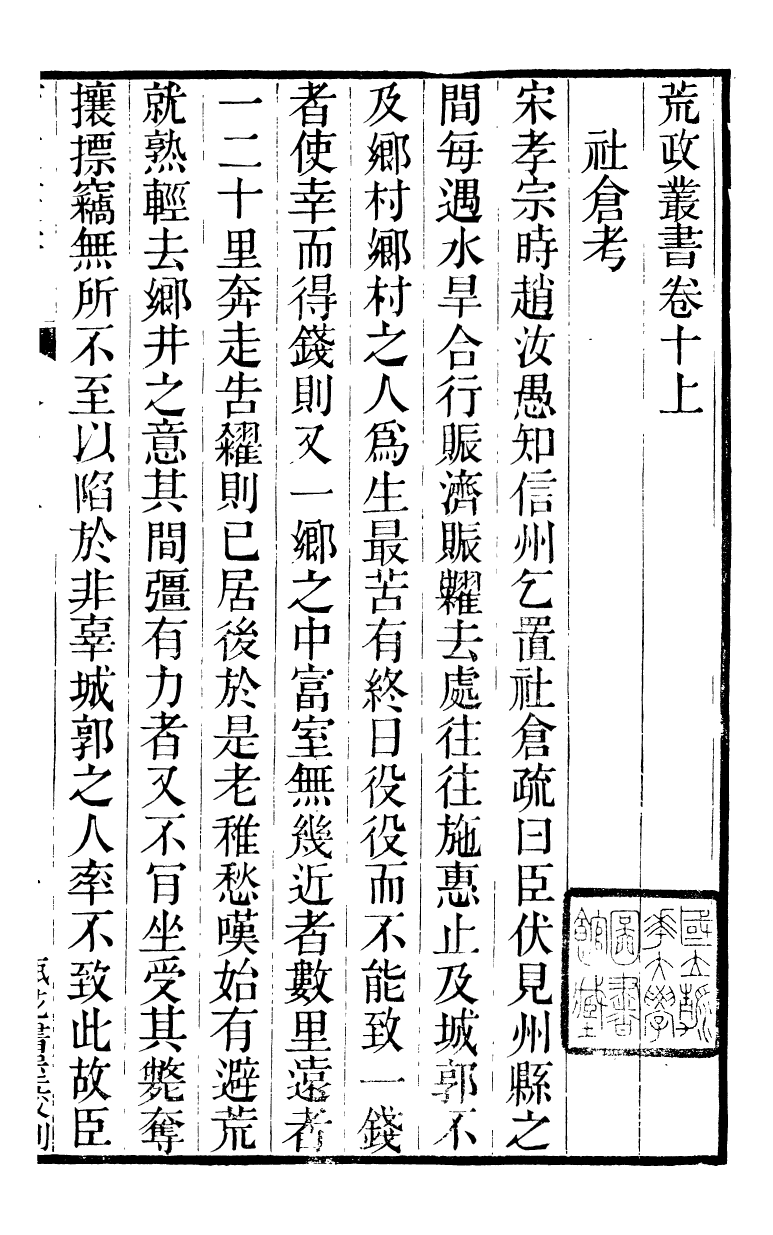 荒政叢書卷十上
社倉考
宋孝宗時趙汝愚知信州乞置社倉疏曰臣伏見州縣之
間每遇水旱合行賑濟賑糶去處往往施惠止及城郭不
及鄉村鄉村之人爲生最苦有終日役役而不能致一錢
者使幸而得錢則又一鄉之中富室無幾近者數里遠者
一二十里奔走告糴則已居後於是老稚愁嘆始有避荒
就熟輕去鄉井之意其間彊有力者又不肯坐受其斃奪
攘摽竊無所不至以陷於非辜城郭之人率不致此故臣
國立
華大學
圖書
館藏